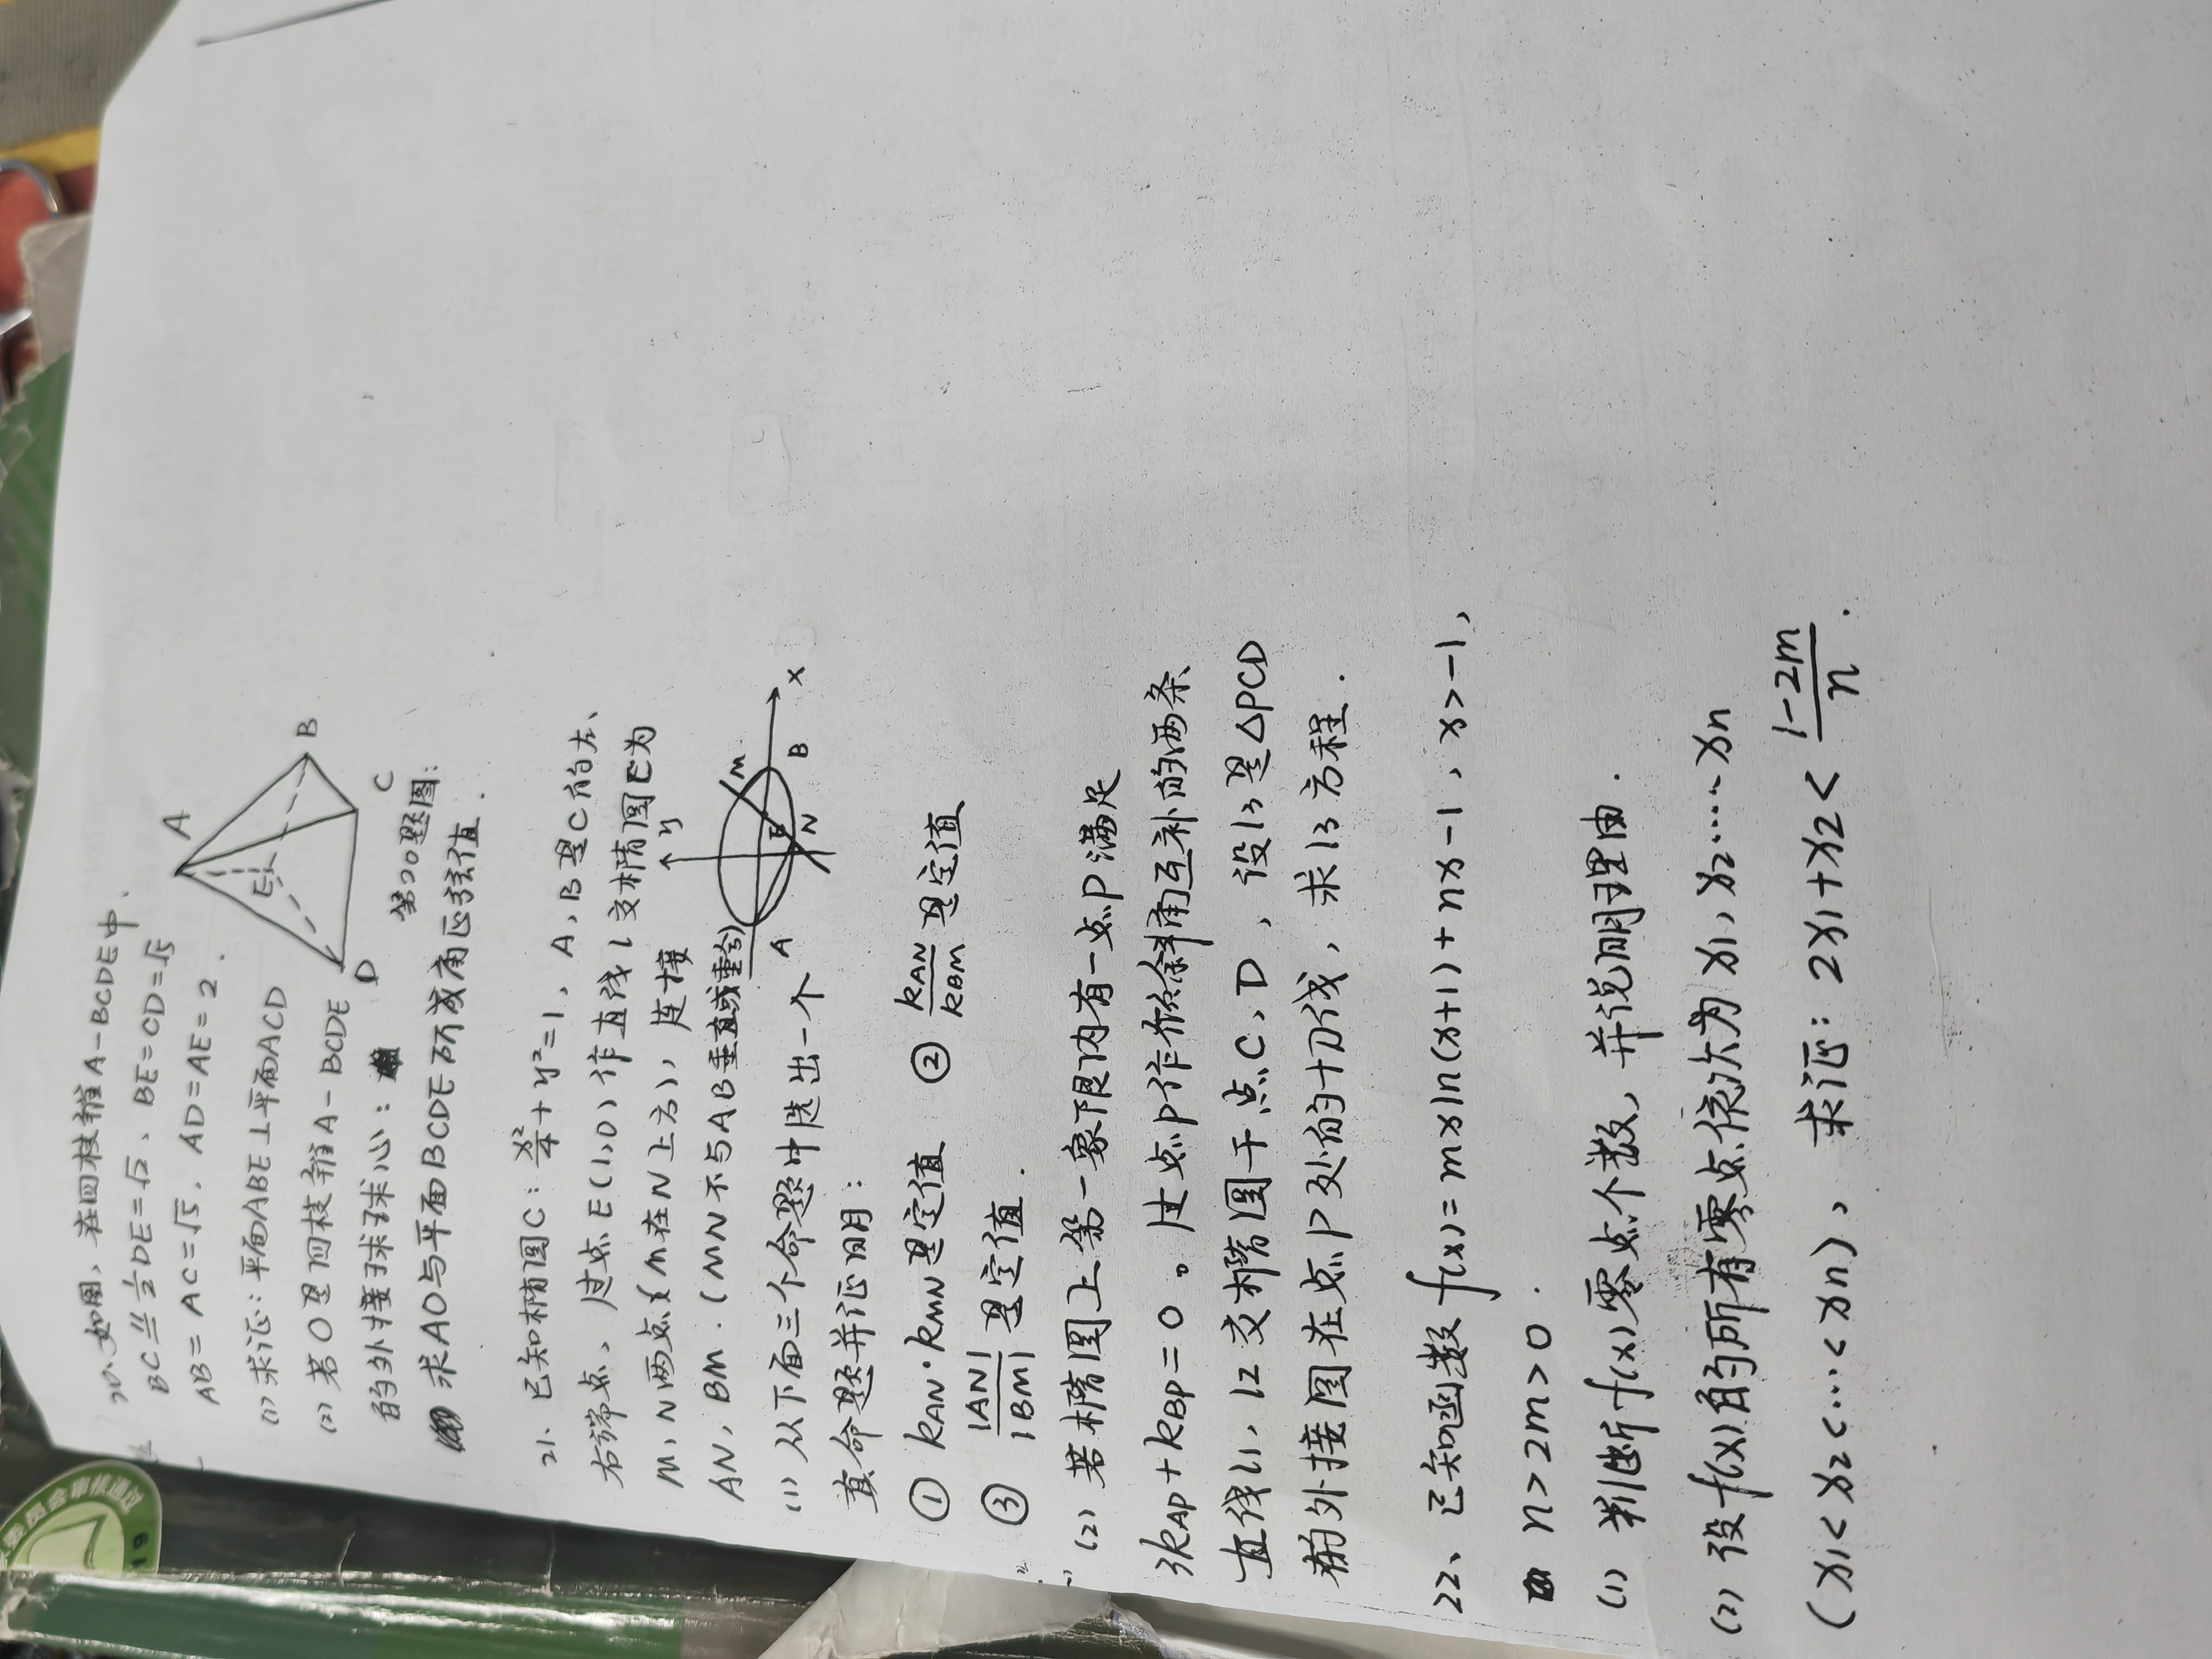 20、如图，在四枝锥A-BCDE中、
BC∥=½DE=√2、BE=CD=√5
AB=AC=√5、AD=AE=2.
(1)求证：平面ABE⊥平面ACD
(2)若O是四枝锥A-BCDE
的外接球球心：
求AO与平面BCDE所成角正弦值.
A
E
B
C
D
第20题图:
21、已知椭圆C: x²/4+y²=1, A,B是C的左、
右端点、过点E(1,0)作直线l交椭圆C为
M,N两点(M在N上方), 连接
AN, BM. (MN不与AB垂直或重合)
(1)从下面三个命题中选出一个
真命题并证明:
y
x
M
E
N
A
B
① kAN·kMN是定值 ② kAN/kBM是定值
③ |AN|/|BM|是定值.
(2)若椭圆上第一象限内有一点P满足
3kAP+kBP=0。过点P作倾斜角互补的两条
直线l1, l2交椭圆于点C、D, 设l3是△PCD
的外接圆在点P处的切线, 求l3方程.
22、已知函数f(x)=mxln(x+1)+nx-1, x>-1,
n>2m>0.
(1) 判断f(x)零点个数, 并说明理由.
(2) 设f(x)的所有零点依次为x1, x2……xn
(x1<x2<…<xn)、 求证: 2x1+x2<(1-2m)/n.
委员会审核通过
19